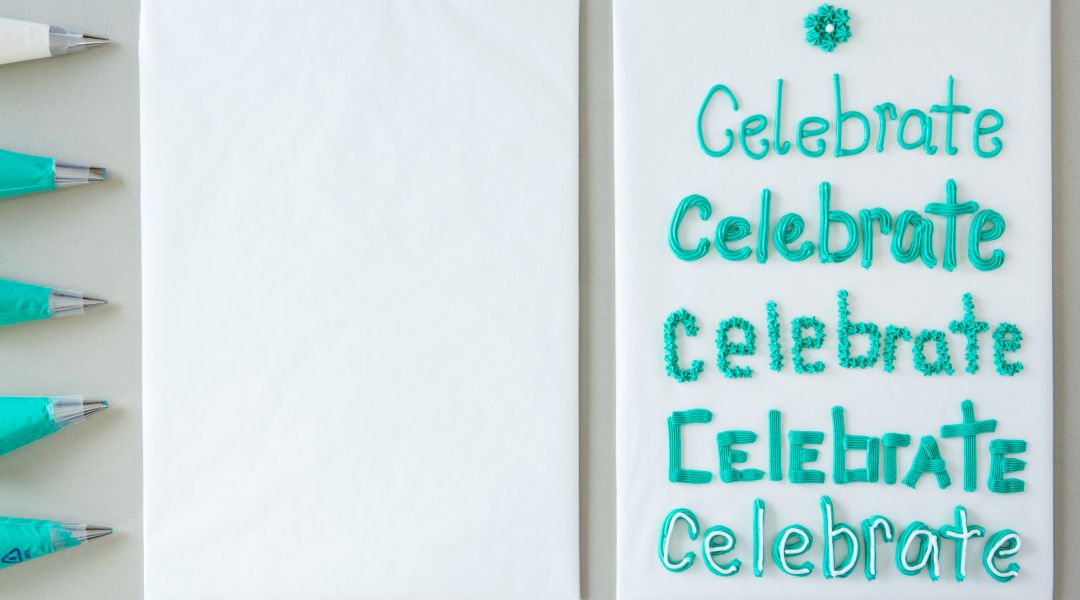 Celebrate
Celebrate
Celebrate
CELEBrATE
Celebrate